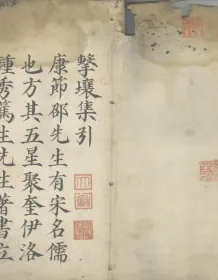 擊壤集引
康節邵先生有宋名儒
也方其五星聚奎伊洛
鍾秀篤生先生著書立